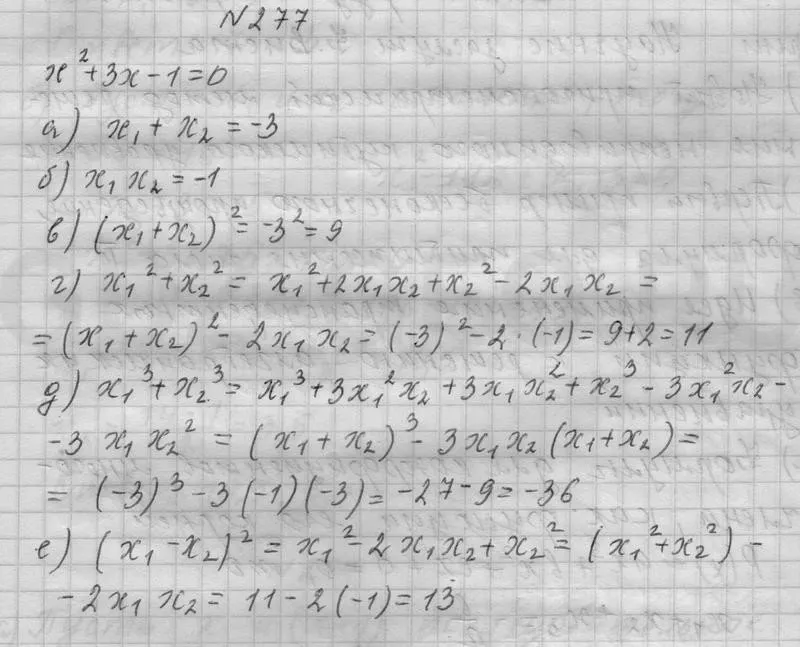 N 277
x² + 3x - 1 = 0
а) x₁ + x₂ = -3
б) x₁ x₂ = -1
в) (x₁ + x₂)² = -3² = 9
г) x₁² + x₂² = x₁² + 2x₁x₂ + x₂² - 2x₁x₂ =
= (x₁ + x₂)² - 2x₁x₂ = (-3)² - 2·(-1) = 9 + 2 = 11
д) x₁³ + x₂³ = x₁³ + 3x₁²x₂ + 3x₁x₂² + x₂³ - 3x₁²x₂ -
-3 x₁x₂² = (x₁ + x₂)³ - 3x₁x₂(x₁ + x₂) =
= (-3)³ - 3(-1)(-3) = -27 - 9 = -36
е) (x₁ - x₂)² = x₁² - 2x₁x₂ + x₂² = (x₁² + x₂²) -
- 2x₁x₂ = 11 - 2(-1) = 13